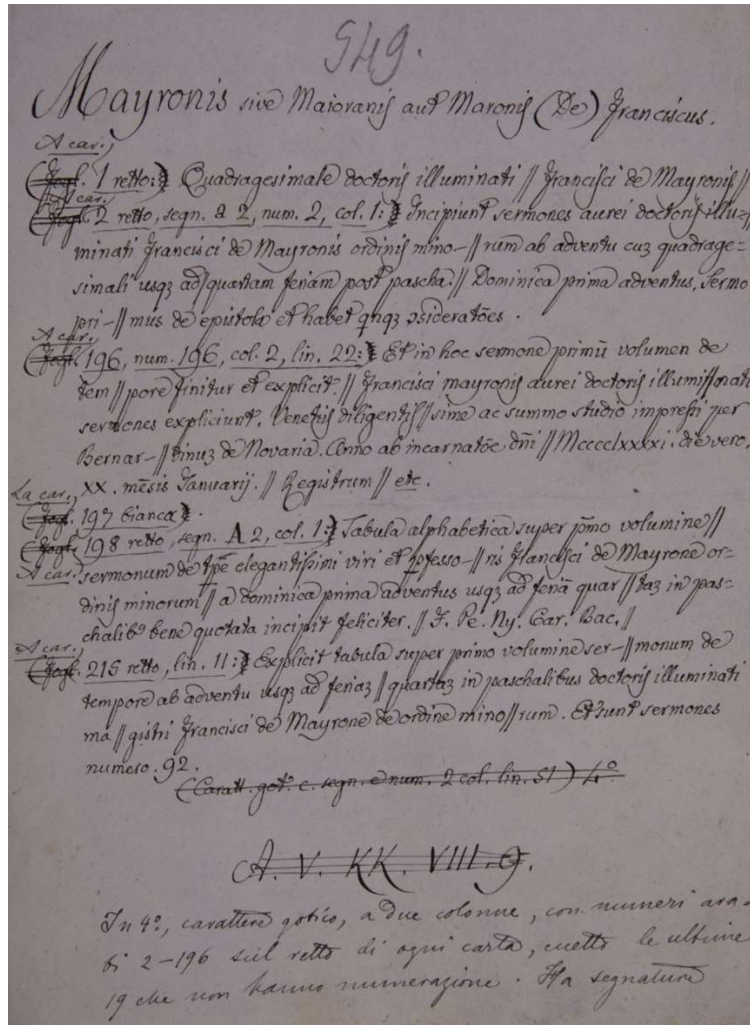 549.
Mayronis sive Maioranis aut Maronis (De) Franciscus.
A car.
(fogl. 1 retto:) Quadragesimale doctoris illuminati // Francisci de Mayronis //
A car.
(fogl. 2 retto, segn. a 2, num. 2, col. 1:) Incipiunt sermones aurei doctoris illu-//
minati Francisci de Mayronis ordinis mino-// rum ab adventu cuz quadrage=
simali usqz ad quartam feriam post pascha. // Dominica prima adventus. Sermo
pri-// mus de epistola et habet qnqz ɔsideratões.
A car.
(fogl. 196, num. 196, col. 2, lin. 22:) Et in hoc sermone primũ volumen de
tem // pore finitur et explicit. // Francisci mayronis aurei doctoris illumi//nati
sermones expliciunt. Venetiis diligentis//sime ac summo studio impressi per
Bernar-// dinuz de Novaria. Anno ab incarnatõe dñi // Mcccclxxxxi. die vero.
XX. mẽsis Januarij. // Registrum // etc.
La car.
(fogl. 197 bianca).
(fogl. 198 retto, segn. A 2, col. 1:) Tabula alphabetica super pmo volumine //
A car.
sermonum de tpẽ elegantissimi viri et pfesso-// ris Francisci de Mayrone or-
dinis minorum // a dominica prima adventus usqz ad feriã quar // taz in pas=
chalibꝰ bene quotata incipit feliciter. // F. Pe. Ny. Car. Bac. //
A car.
(fogl. 215 retto, lin. 11:) Explicit tabula super primo volumine ser-// monum de
tempore ab adventu usqz ad feriaz // quartaz in paschalibus doctoris illuminati
ma // gistri Francisci de Mayrone de ordine mino//rum. Et sunt sermones
numero. 92.
(Caratt. got. c. segn. e num. 2 col. lin. 51) 4º.
A. V. KK. VIII. 9.
In 4º, carattere gotico, a due colonne, con numeri ara-
bi 2-196 sul retto di ogni carta, eccetto le ultime
19 che non hanno numerazione. Ha segnature